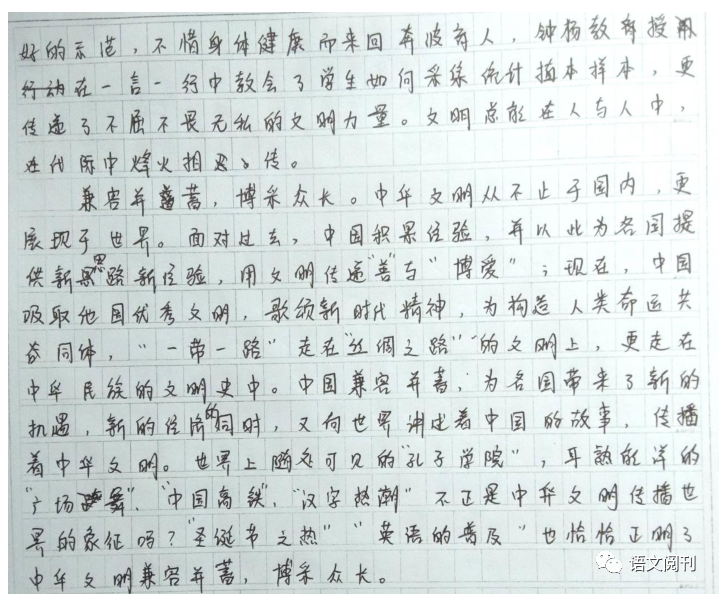 好的示范，不惜身体健康而来回奔波育人，钟杨教授用
行动在一言一行中教会了学生如何采综统计植本样本，更
传递了不屈不畏无私的文明力量。文明总能在人与人中，
在代际中烽火相传。
兼容并蓄，博采众长。中华文明从不止于国内，更
展现于世界。面对过去，中国积累经验，并以此为各国提
供新思路新经验，用文明传递"善"与"博爱"；现在，中国
吸取他国优秀文明，歌颂新时代精神，为构造人类命运共
同体，"一带一路"走在"丝绸之路"的文明上，更走在
中华民族的文明史中。中国兼容并蓄，为各国带来了新的
机遇，新的经济的同时，又向世界讲述着中国的故事，传播
着中华文明。世界上随处可见的"孔子学院"，耳熟能详的
"广场舞"、"中国高铁"、"汉字热潮"不正是中华文明传播世
界的象征吗？"圣诞节之热""英语的普及"也恰恰正明了
中华文明兼容并蓄，博采众长。
语文阅刊